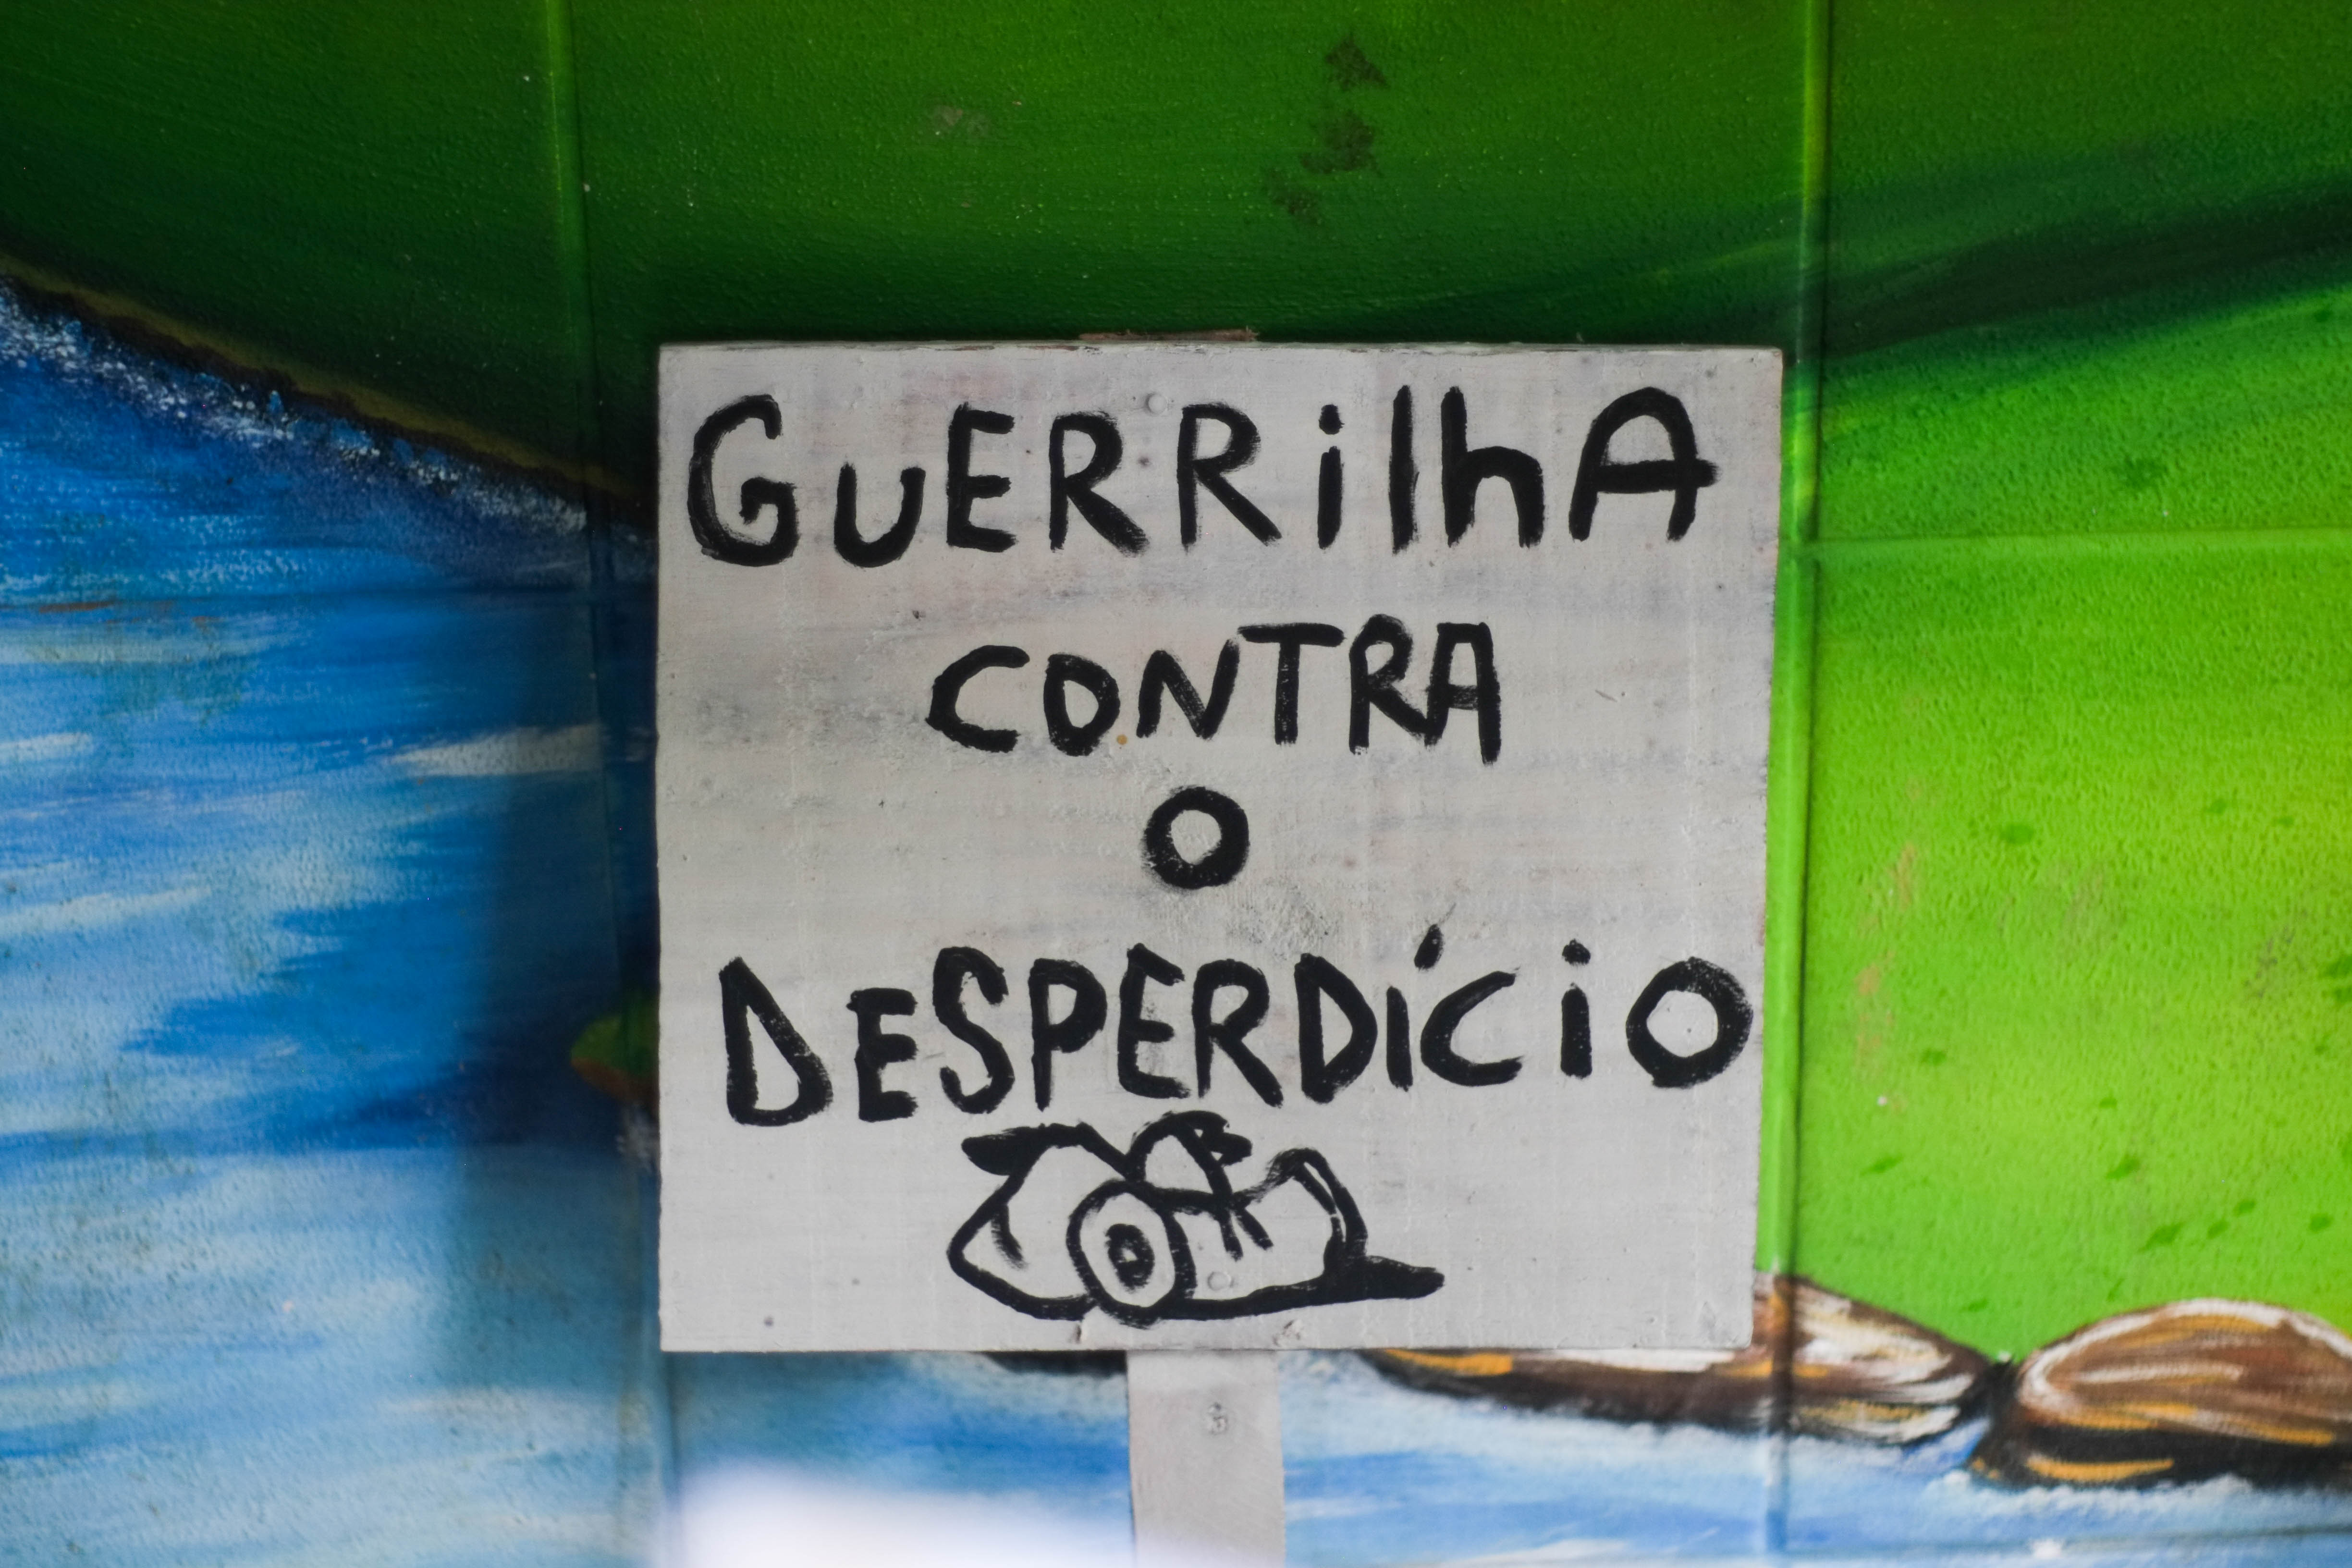 GUERRilhA
CONTRA
O
DESPERDÍCiO